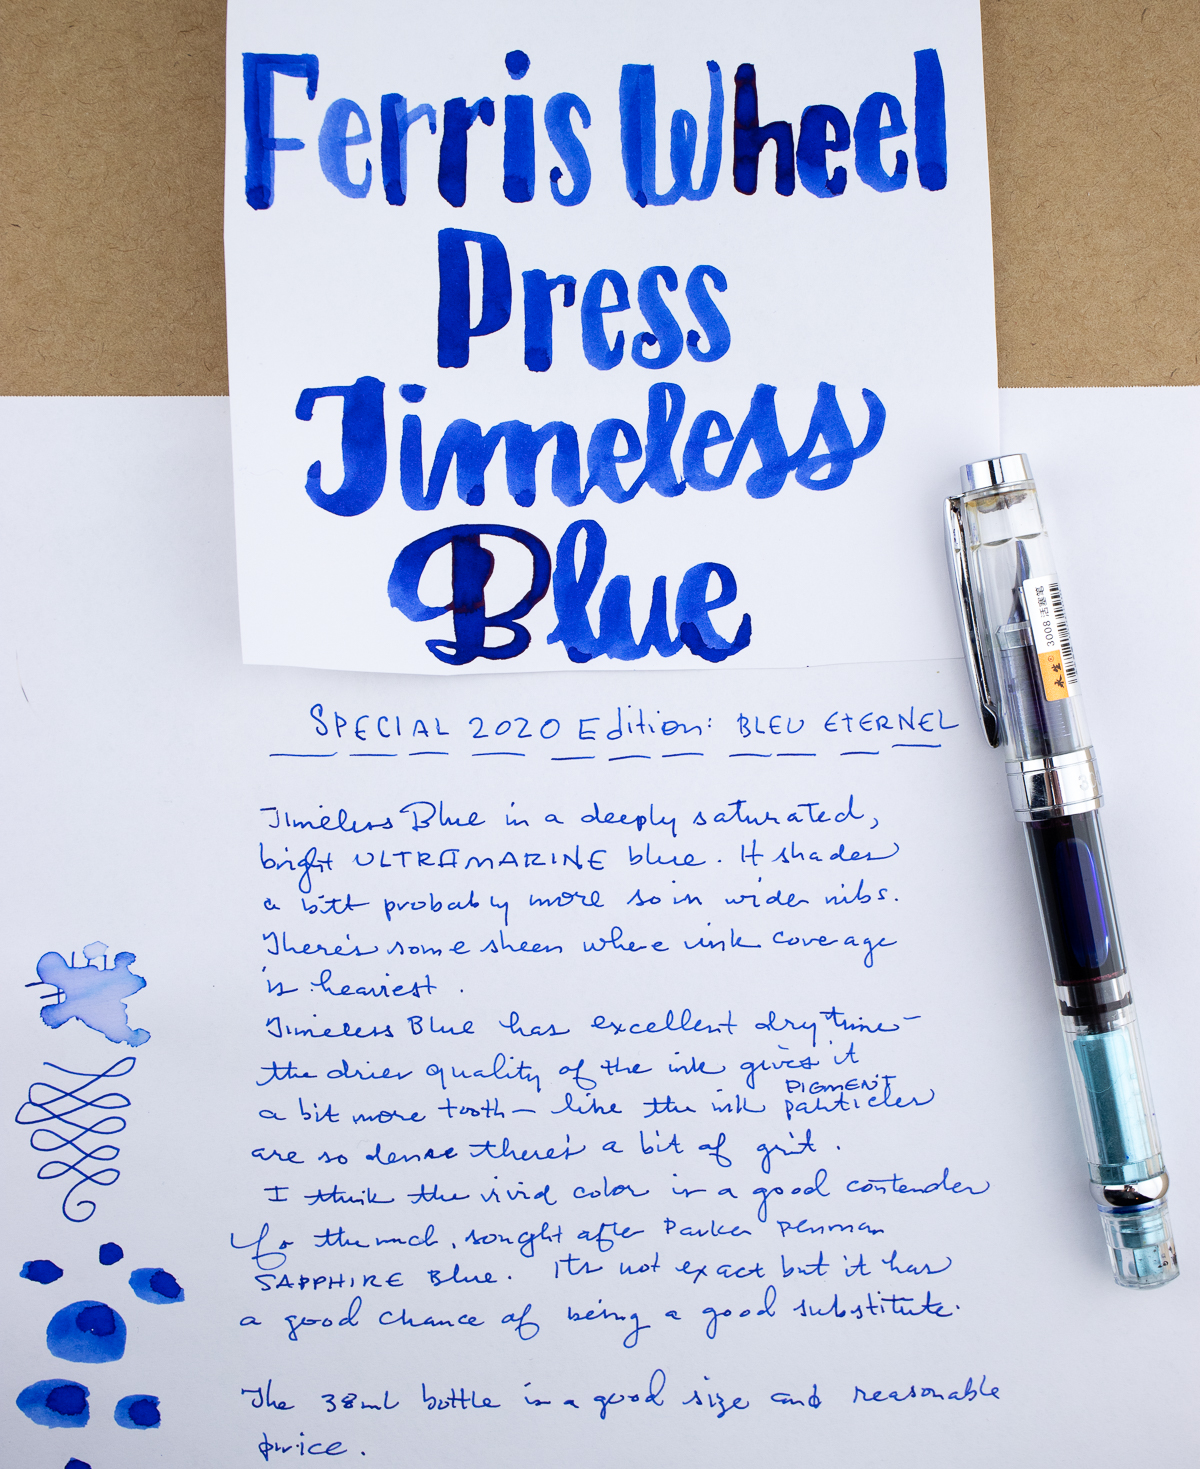 Ferris Wheel
Press
Timeless
Blue
SPECIAL 2020 Edition: BLEU ETERNEL
Timeless Blue is a deeply saturated,
bright ULTRAMARINE blue. It shades
a bit probably more so in wider nibs.
There's some sheen where ink coverage
is heaviest.
Timeless Blue has excellent dry time—
the drier quality of the ink gives it
a bit more tooth— like the ink PIGMENT particles
are so dense there's a bit of grit.
I think the vivid color is a good contender
for the much, sought after Parker Penman
SAPPHIRE Blue. Its not exact but it has
a good chance of being a good substitute.
The 38ml bottle is a good size and reasonable
price.
3008 活塞笔
永生®